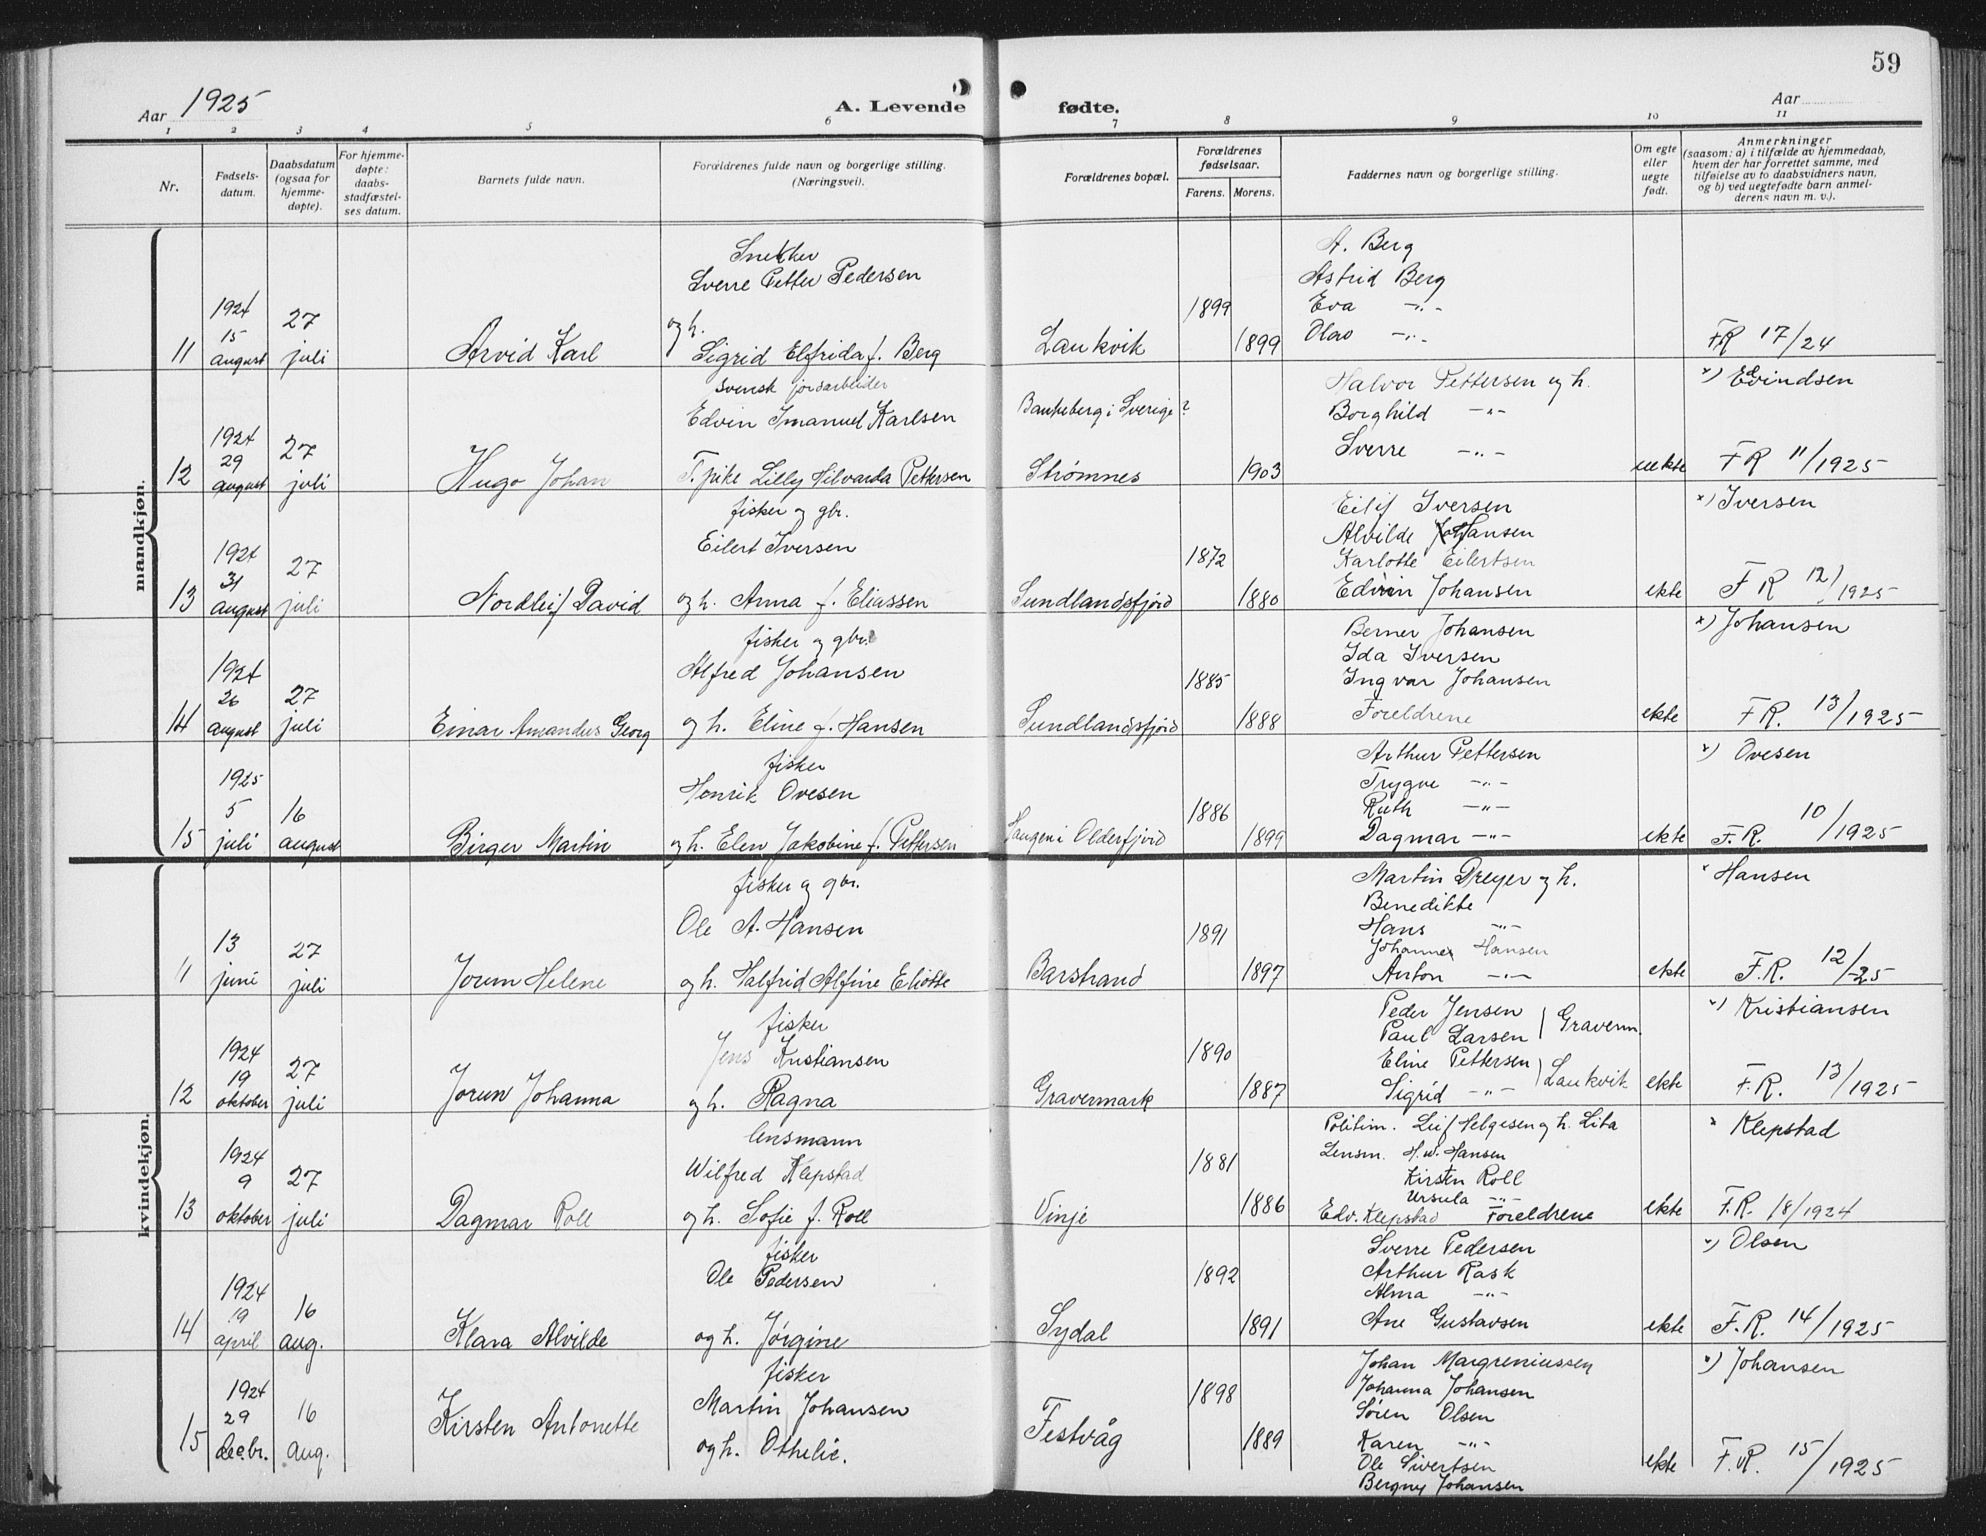 59
Aar 1925
A. Levende
fødte.
Aar
1 2 3 4 5 6 7 8 9 10 11
Nr.
Fødsels-
datum.
Daabsdatum
(ogsaa for
hjemme-
døpte).
For hjemme-
døpte:
daabs-
stadfæstel-
ses datum.
Barnets fulde navn.
Forældrenes fulde navn og borgerlige stilling.
(Næringsvei).
Forældrenes bopæl.
Forældrenes
fødselsaar.
Farens. Morens.
Faddernes navn og borgerlige stilling.
Om egte
eller
uegte
født.
Anmerkninger
(saasom: a) i tilfælde av hjemmedaab,
hvem der har forrettet samme, med
tilføielse av to daabsvidners navn,
og b) ved uegtefødte barn anmel-
derens navn m. v.).
mandkjøn.
11
1924
15
august
27
juli
Arvid Karl
Snekker
Sverre Petter Pedersen
og h.
Sigrid Elfrida f. Berg
Laukvik
1899
1899
A. Berg
Astrid Berg
Eva -"-
Olav -"-
FR 17/24
12
1924
29
august
27
juli
Hugo Johan
svensk jordarbeider
Edvin Imanuel Karlsen
T. pike Lilly Hilvarda Pettersen
Bankeberg i Sverige?
Strømnes
1903
Halvor Pettersen og h.
Borghild -"-
Sverre -"-
uekte
x) Edvindsen
FR 11/1925
13
1924
31
august
27
juli
Nordleif David
fisker og gbr.
Eilert Iversen
og h. Anna f. Eliassen
Sundlandsfjord
1872
1880
Eilif Iversen
Alvilde Johansen
Karlotte Eilertsen
Edvin Johansen
ekte
x) Iversen
F R 12/1925
14
1924
26
august
27
juli
Einar Amandus Georg
fisker og gbr.
Alfred Johansen
og h. Eline f. Hansen
Sundlandsfjord
1885
1888
Berner Johansen
Ida Iversen
Ingvar Johansen
Foreldrene
ekte
x) Johansen
FR. 13/1925
15
1925
5
juli
16
august
Birger Martin
fisker
Henrik Ovesen
og h. Elen Jakobine f. Pettersen
Haugen i Olderfjord
1886
1899
Arthur Pettersen
Trygve -"-
Ruth -"-
Dagmar -"-
ekte
x) Ovesen
F.R. 10/1925
kvindekjøn.
11
13
juni
27
juli
Jorun Helene
fisker og gbr.
Ole A. Hansen
og h. Halfrid Alfine Eliotte
Barstrand
1891
1897
Martin Dreyer og h.
Benedikte
Hans -"-
Johannes Hansen
Anton -"-
ekte
x Hansen
F.R. 12/-25
12
1924
19
oktober
27
juli
Jorun Johanna
fisker
Jens Kristiansen
og h. Ragna
Gravermark
1890
1887
Peder Jensen
Paul Larsen } Graverm.
Eline Pettersen
Sigrid -"- } Laukvik
ekte
x) Kristiansen
F.R. 13/1925
13
1924
9
oktober
27
juli
Dagmar Roll
lensmann
Wilfred Klepstad
og h. Sofie f. Roll
Vinje
1881
1886
Politim. Leif Helgesen og h. Lita
Lensm. H.W. Hansen
Kirsten Roll
Ursula -"-
Edv. Klepstad Foreldrene
ekte
x Klepstad
F.R. 18/1924
14
1924
19
april
16
aug.
Klara Alvilde
fisker
Ole Pedersen
og h. Jørgine
Sydal
1892
1891
Sverre Pedersen
Arthur Rask
Alma -"-
Ane Gustavsen
ekte
x) Olsen
F.R. 14/1925
15
1924
29
decbr.
16
aug.
Kirsten Antonette
fisker
Martin Johansen
og h. Othelie.
Festvåg
1898
1889
Johan Margreniussen
Johanna Johansen
Søren Olsen
Karen -"-
Ole Sivertsen
Bergny Johansen
ekte
x) Johansen
F.R. 15/1925